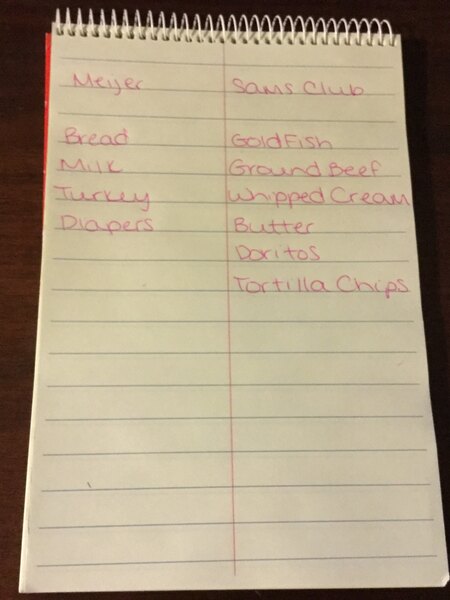 Meijer
Bread
Milk
Turkey
Diapers
Sams Club
GoldFish
Ground Beef
Whipped Cream
Butter
Doritos
Tortilla Chips